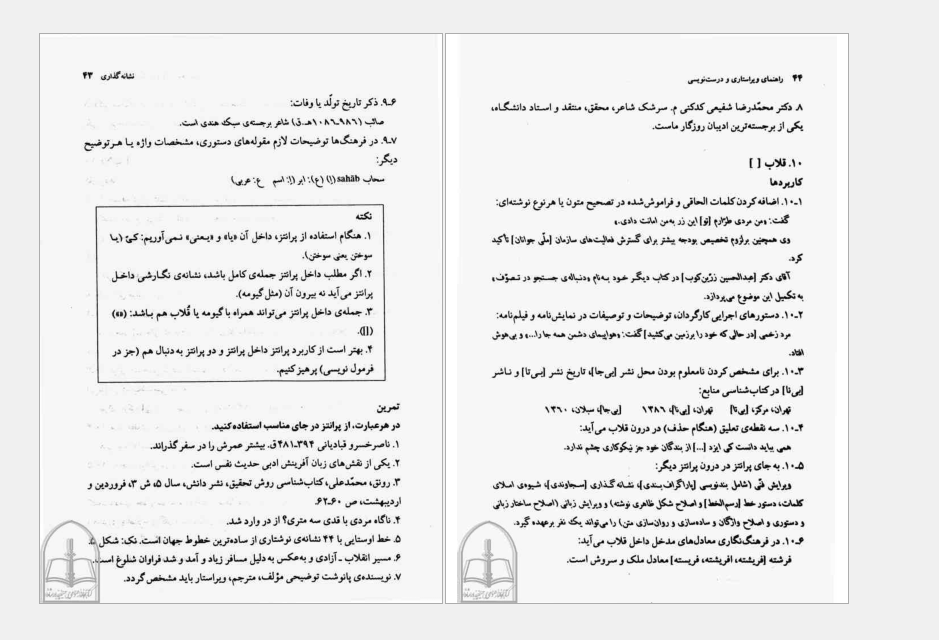 نشانه‌گذاری ۴۳
۹ـ۶. ذکر تاریخ تولّد یا وفات:
صائب (۹۸۶ـ۱۰۸۶هـ.ق) شاعر برجسته‌ی سبک هندی است.
۹ـ۷. در فرهنگ‌ها توضیحات لازم مقوله‌های دستوری، مشخصات واژه یا هرتوضیح
دیگر:
سحاب sahāb (اِ) (ع): ابر (اِ: اسم ع: عربی)
نکته
۱. هنگام استفاده از پرانتز، داخل آن «یا» و «یعنی» نمی‌آوریم: کیّ (یا
سوختن یعنی سوختن).
۲. اگر مطلب داخل پرانتز جمله‌ی کامل باشد، نشانه‌ی نگارشی داخل
پرانتز می‌آید نه بیرون آن (مثل گیومه).
۳. جمله‌ی داخل پرانتز می‌تواند همراه با گیومه یا قُلاب هم باشد: («»)
([]).
۴. بهتر است از کاربرد پرانتز داخل پرانتز و دو پرانتز به دنبال هم (جز در
فرمول نویسی) پرهیز کنیم.
تمرین
در هرعبارت، از پرانتز در جای مناسب استفاده کنید.
۱. ناصرخسرو قبادیانی ۳۹۴ـ۴۸۱ق. بیشتر عمرش را در سفر گذراند.
۲. یکی از نقش‌های زبان آفرینش ادبی حدیث نفس است.
۳. رونق، محمّدعلی، کتاب‌شناسی روش تحقیق، نشر دانش، سال ۵، ش ۳، فروردین و
اردیبهشت، ص ۶۰ـ۶۲.
۴. ناگاه مردی با قدی سه متری؟ از در وارد شد.
۵. خط اوستایی با ۴۴ نشانه‌ی نوشتاری از ساده‌ترین خطوط جهان است. نک: شکل ۵.
۶. مسیر انقلاب ـ آزادی و به‌عکس به دلیل مسافر زیاد و آمد و شد فراوان شلوغ است.
۷. نویسنده‌ی پانوشت توضیحی مؤلف، مترجم، ویراستار باید مشخص گردد.
۴۴ راهنمای ویراستاری و درست‌نویسی
۸. دکتر محمّدرضا شفیعی کدکنی م. سرشک شاعر، محقق، منتقد و استاد دانشگاه،
یکی از برجسته‌ترین ادیبان روزگار ماست.
۱۰. قلاب [ ]
کاربردها
۱۰ـ۱. اضافه کردن کلمات الحاقی و فراموش‌شده در تصحیح متون یا هرنوع نوشته‌ای:
گفت: «من مردی طرّارم [تو] این زر به‌من امانت دادی.»
وی همچنین برلزوم تخصیص بودجه بیشتر برای گسترش فعالیت‌های سازمان [ملّی جوانان] تأکید
کرد.
آقای دکتر [عبدالحسین زرّین‌کوب] در کتاب دیگر خود به‌نام «دنباله‌ی جستجو در تصوّف»
به تکمیل این موضوع می‌پردازد.
۱۰ـ۲. دستورهای اجرایی کارگردان، توضیحات و توصیفات در نمایش‌نامه و فیلم‌نامه:
مرد زخمی [در حالی که خود را برزمین می‌کشید] گفت: «هواپیمای دشمن همه جا را...» و بی‌هوش
افتاد.
۱۰ـ۳. برای مشخص کردن نامعلوم بودن محل نشر [بی‌جا]، تاریخ نشر [بی‌تا] و ناشر
[بی‌نا] در کتاب‌شناسی منابع:
تهران، مرکز، [بی‌تا] تهران، [بی‌نا]، ۱۳۸۶ [بی‌جا]، سبلان، ۱۳۶۰
۱۰ـ۴. سه نقطه‌ی تعلیق (هنگام حذف) در درون قلاب می‌آید:
همی بباید دانست کی ایزد [...] از بندگان خود جز نیکوکاری چشم ندارد.
۱۰ـ۵. به جای پرانتز در درون پرانتز دیگر:
ویرایش فنّی (شامل بندنویسی [پاراگراف‌بندی]، نشانه گذاری [سجاوندی]، شیوه‌ی املای
کلمات، دستور خط [رسم‌الخط] و اصلاح شکل ظاهری نوشته) و ویرایش زبانی (اصلاح ساختار زبانی
و دستوری و اصلاح واژگان و ساده‌سازی و روان‌سازی متن) را می‌تواند یک نفر برعهده گیرد.
۱۰ـ۶. در فرهنگ‌نگاری معادل‌های مدخل داخل قلاب می‌آید:
فرشته [فریشته، افریشته، فریسته] معادل ملک و سروش است.